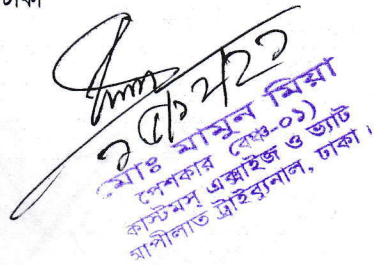 ঢাকা
মোঃ মামুন মিয়া
পেশকার (বেঞ্চ-০১)
কাস্টমস্ এক্সাইজ ও ভ্যাট
আপীলাত ট্রাইব্যুনাল, ঢাকা।